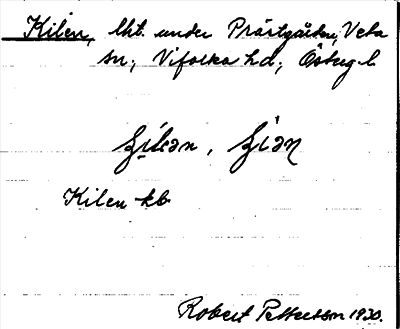 Kilen, lht. under Prästgården, Veta
sn; Vifolka hd; Östergl
Kilen kb
Robert Pettersson 1930.